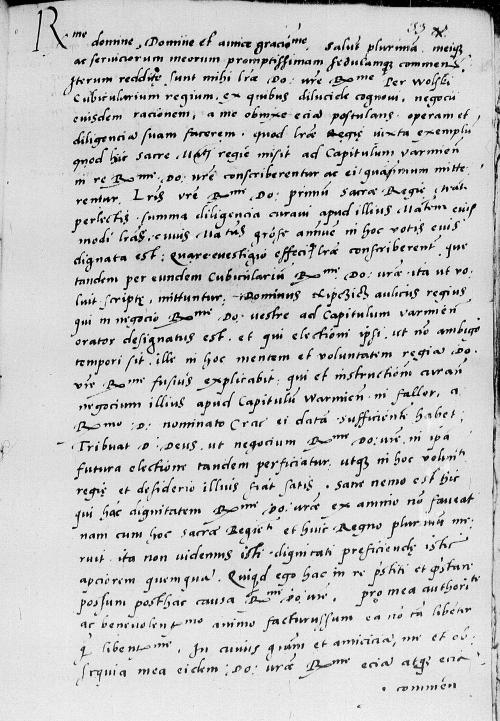 33
R me domine, Domine et amice gracio me. Salut plurima meiq
ac serviciorum meorum promptissimam sedulamq commen
Iterum reddite sunt mihi lrae Do: vre R me Per Wolski
Cubicularium regium, ex quibus dilucide cognovi, negocii
eiusdem racionem, a me obnixe ecia postulans operam et
diligencia suam facerem. quod lrae Regie iuxta exemplu
quod huc Sacre Mats regie misit ad Capitulum varmien
in re R me Do: vre conscriberentur ac ei quaprimum mitte
rentur. Lris vre R me Do: primu Sacrae Regie Mat
perlectis, summa diligencia curavi apud illius Matem eius
modi lras, cuius Matas annue in hoc votis eius
dignata est; quare evestigio effeci lrae conscriberent que
tandem per eundem Cubiculariu R me Do: vrae ita ut vo
luit scripte, mittuntur. Dominus aulicus regius
qui in negocio R me Do: vestre ad Capitulum varmien
orator designatus est, et qui electioni ipsi ut no ambigo
tempori sit, ille in hoc mentem et voluntatem regia Do.
vre R me fusius explicabit. qui et instructiom curan
negocium illius apud Capitulu Warmien ni fallor, a
R mo D: nominato Crac ei data sufficiente habet;
Tribuat D: Deus ut negocium R me Do: vre in ipa
futura electione tandem perficiatur utq in hoc volunti
regie et desiderio illius fiat satis. Sane nemo est hic
qui hac dignitatem R me Do: vrae ex animo no faveat
nam cum hoc sacrae Regie ti et huic Regno plurimu me
ruit ita non videmus isti dignitati preficiende istic
apciorem quemqua. Quicqd ego hac in re prstiti et prstare
possum posthac causa R me Do: vre, pro mea authorite
ac benevolent mo animo facturussum ea no ta libeter
q libent me. In cuius gram et amicicia, me et ob
sequia mea eidem Do: vrae R me ecia atq ecia
commen